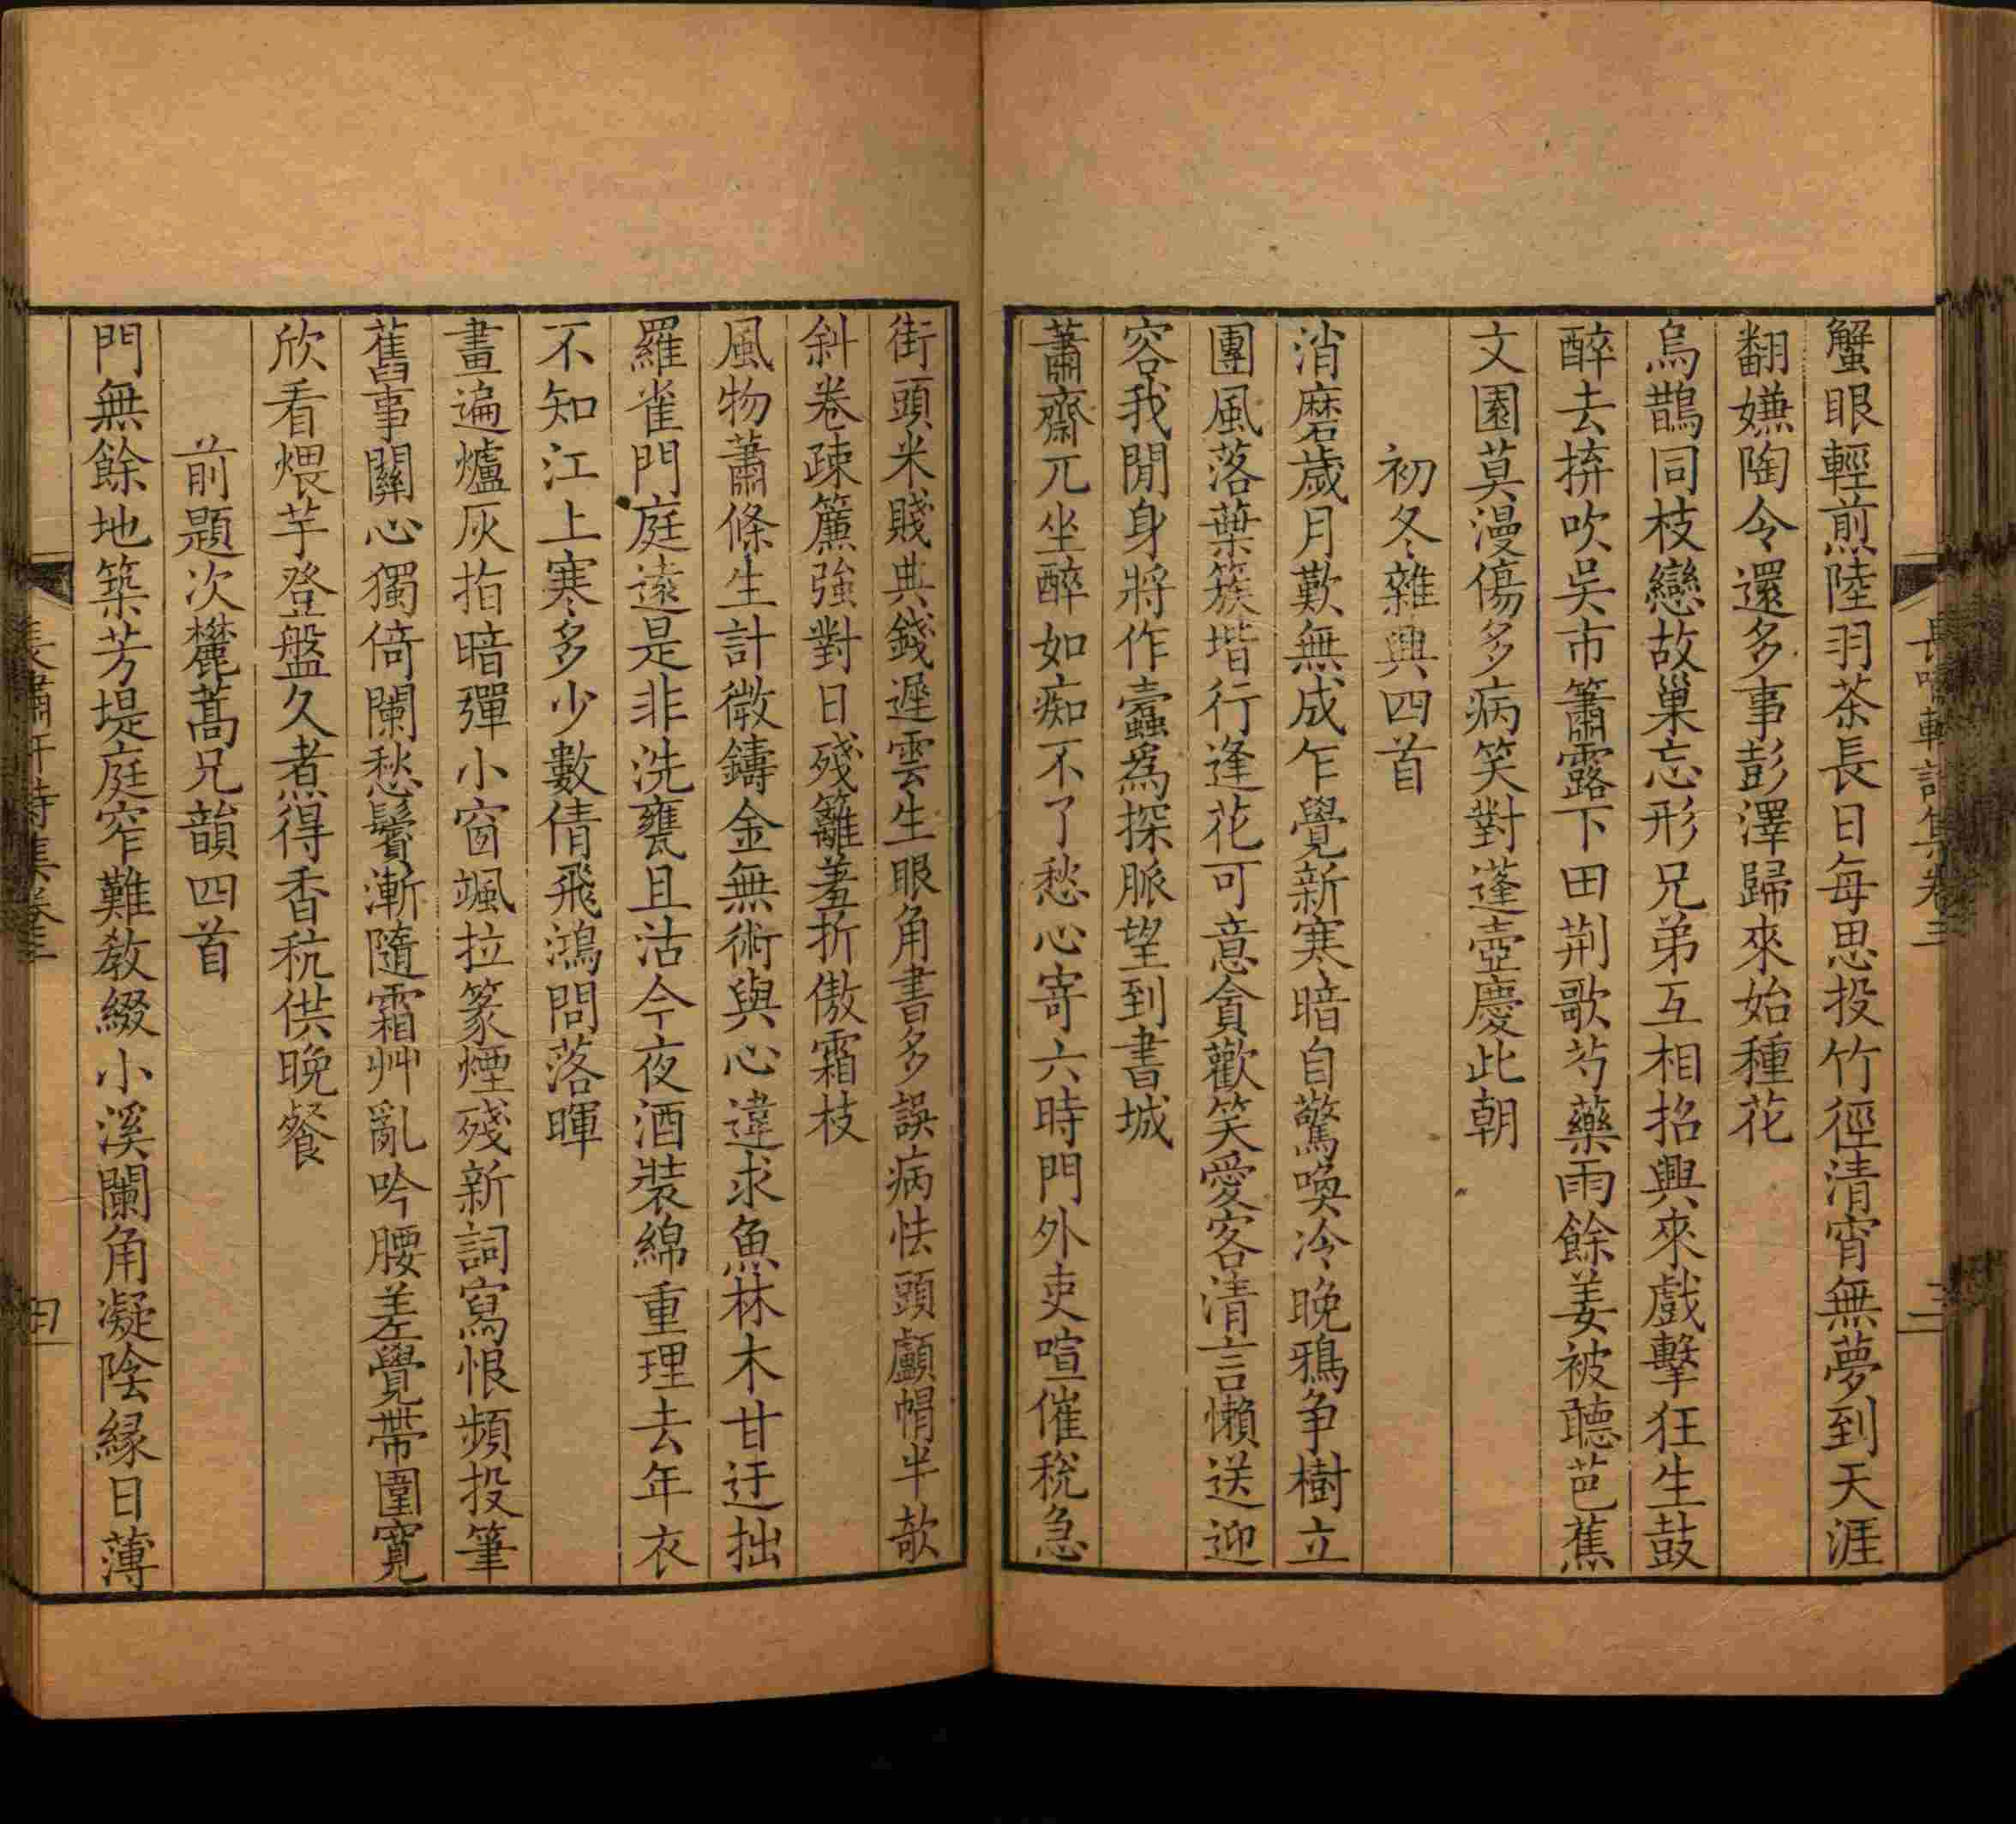 長嘯軒詩集卷三
三
蟹眼輕煎陸羽茶長日每思投竹徑清宵無夢到天涯
翻嫌陶令還多事彭澤歸來始種花
烏鵲同枝戀故巢忘形兄弟互相招興來戲擊狂生鼓
醉去拚吹吴市簫露下田荆歌芍藥雨餘姜被聽芭蕉
文園莫漫傷多病笑對蓬壺慶此朝
初冬雜興四首
消磨歲月歎無成乍覺新寒暗自驚喚冷晚鴉争樹立
團風落葉簇堦行逢花可意貪歡笑愛客清言懶送迎
容我閒身將作蠹爲探脈望到書城
蕭齋兀坐醉如痴不了愁心寄六時門外吏喧催稅急
街頭米賤典錢遲雲生眼角書多誤病怯頭顱帽半欹
斜卷疎簾強對日殘籬羞折傲霜枝
風物蕭條生計微鑄金無術與心違求魚林木甘迂拙
羅雀門庭遠是非洗甕且沽今夜酒裝綿重理去年衣
不知江上寒多少數倩飛鴻問落暉
畫遍爐灰指暗彈小窗颯拉篆煙殘新詞寫恨頻投筆
舊事關心獨倚闌愁鬢漸隨霜艸亂吟腰差覺帶圍寬
欣看煨芋登盤久煮得香秔供晚餐
前題次蘪蒿兄韻四首
門無餘地築芳堤庭窄難教綴小溪闌角凝陰緣日薄
長嘯軒詩集卷三